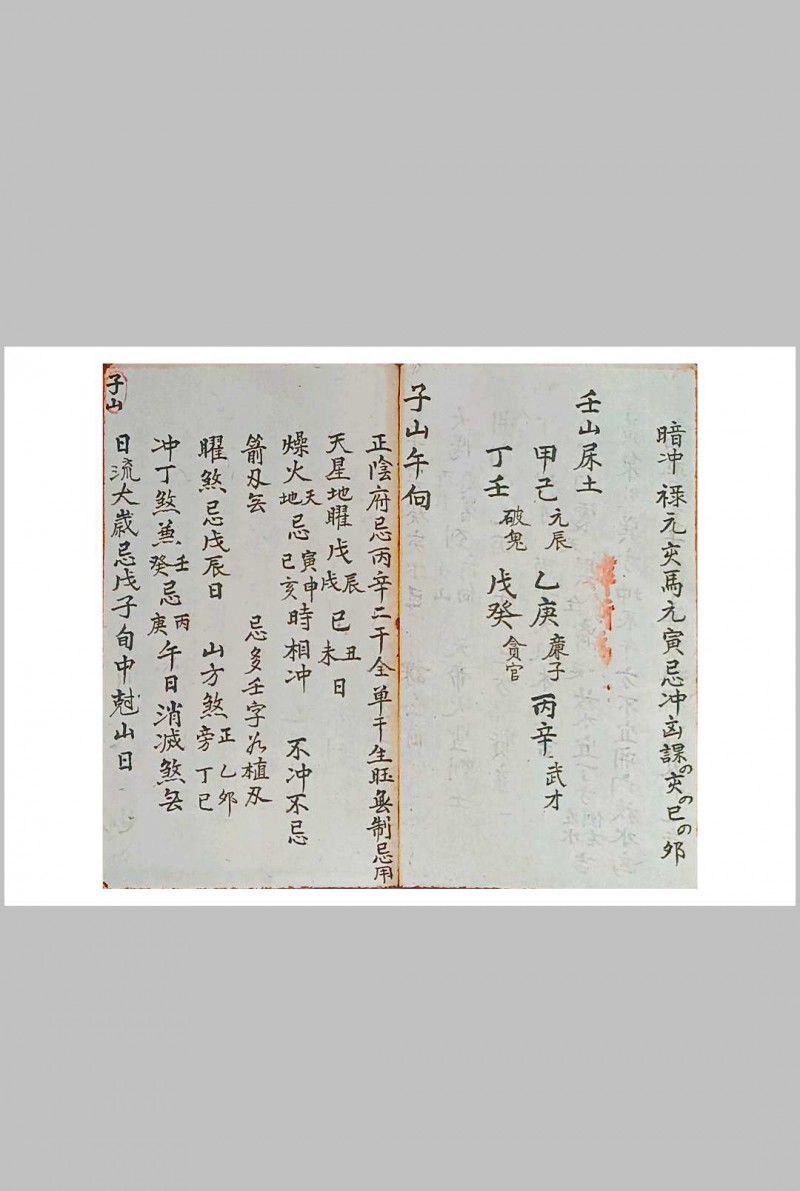 暗冲 禄元亥馬元寅忌冲凶課の亥の巳の夘
壬山屎土
甲己元辰 乙庚廉子 丙辛武才
丁壬破鬼 戊癸貪官
子山午向
正陰府忌丙辛二干全单干生旺無制忌用
天星地曜戊辰戌巳丑未日
燥火天地忌寅申己亥時相冲 不冲不忌
箭刄年 忌多壬字為植刄
曜煞忌戊辰日 山方煞正乙夘旁丁巳
冲丁煞兼壬癸忌丙庚午日消滅煞年
日流太歲忌戊子旬中尅山日
子山